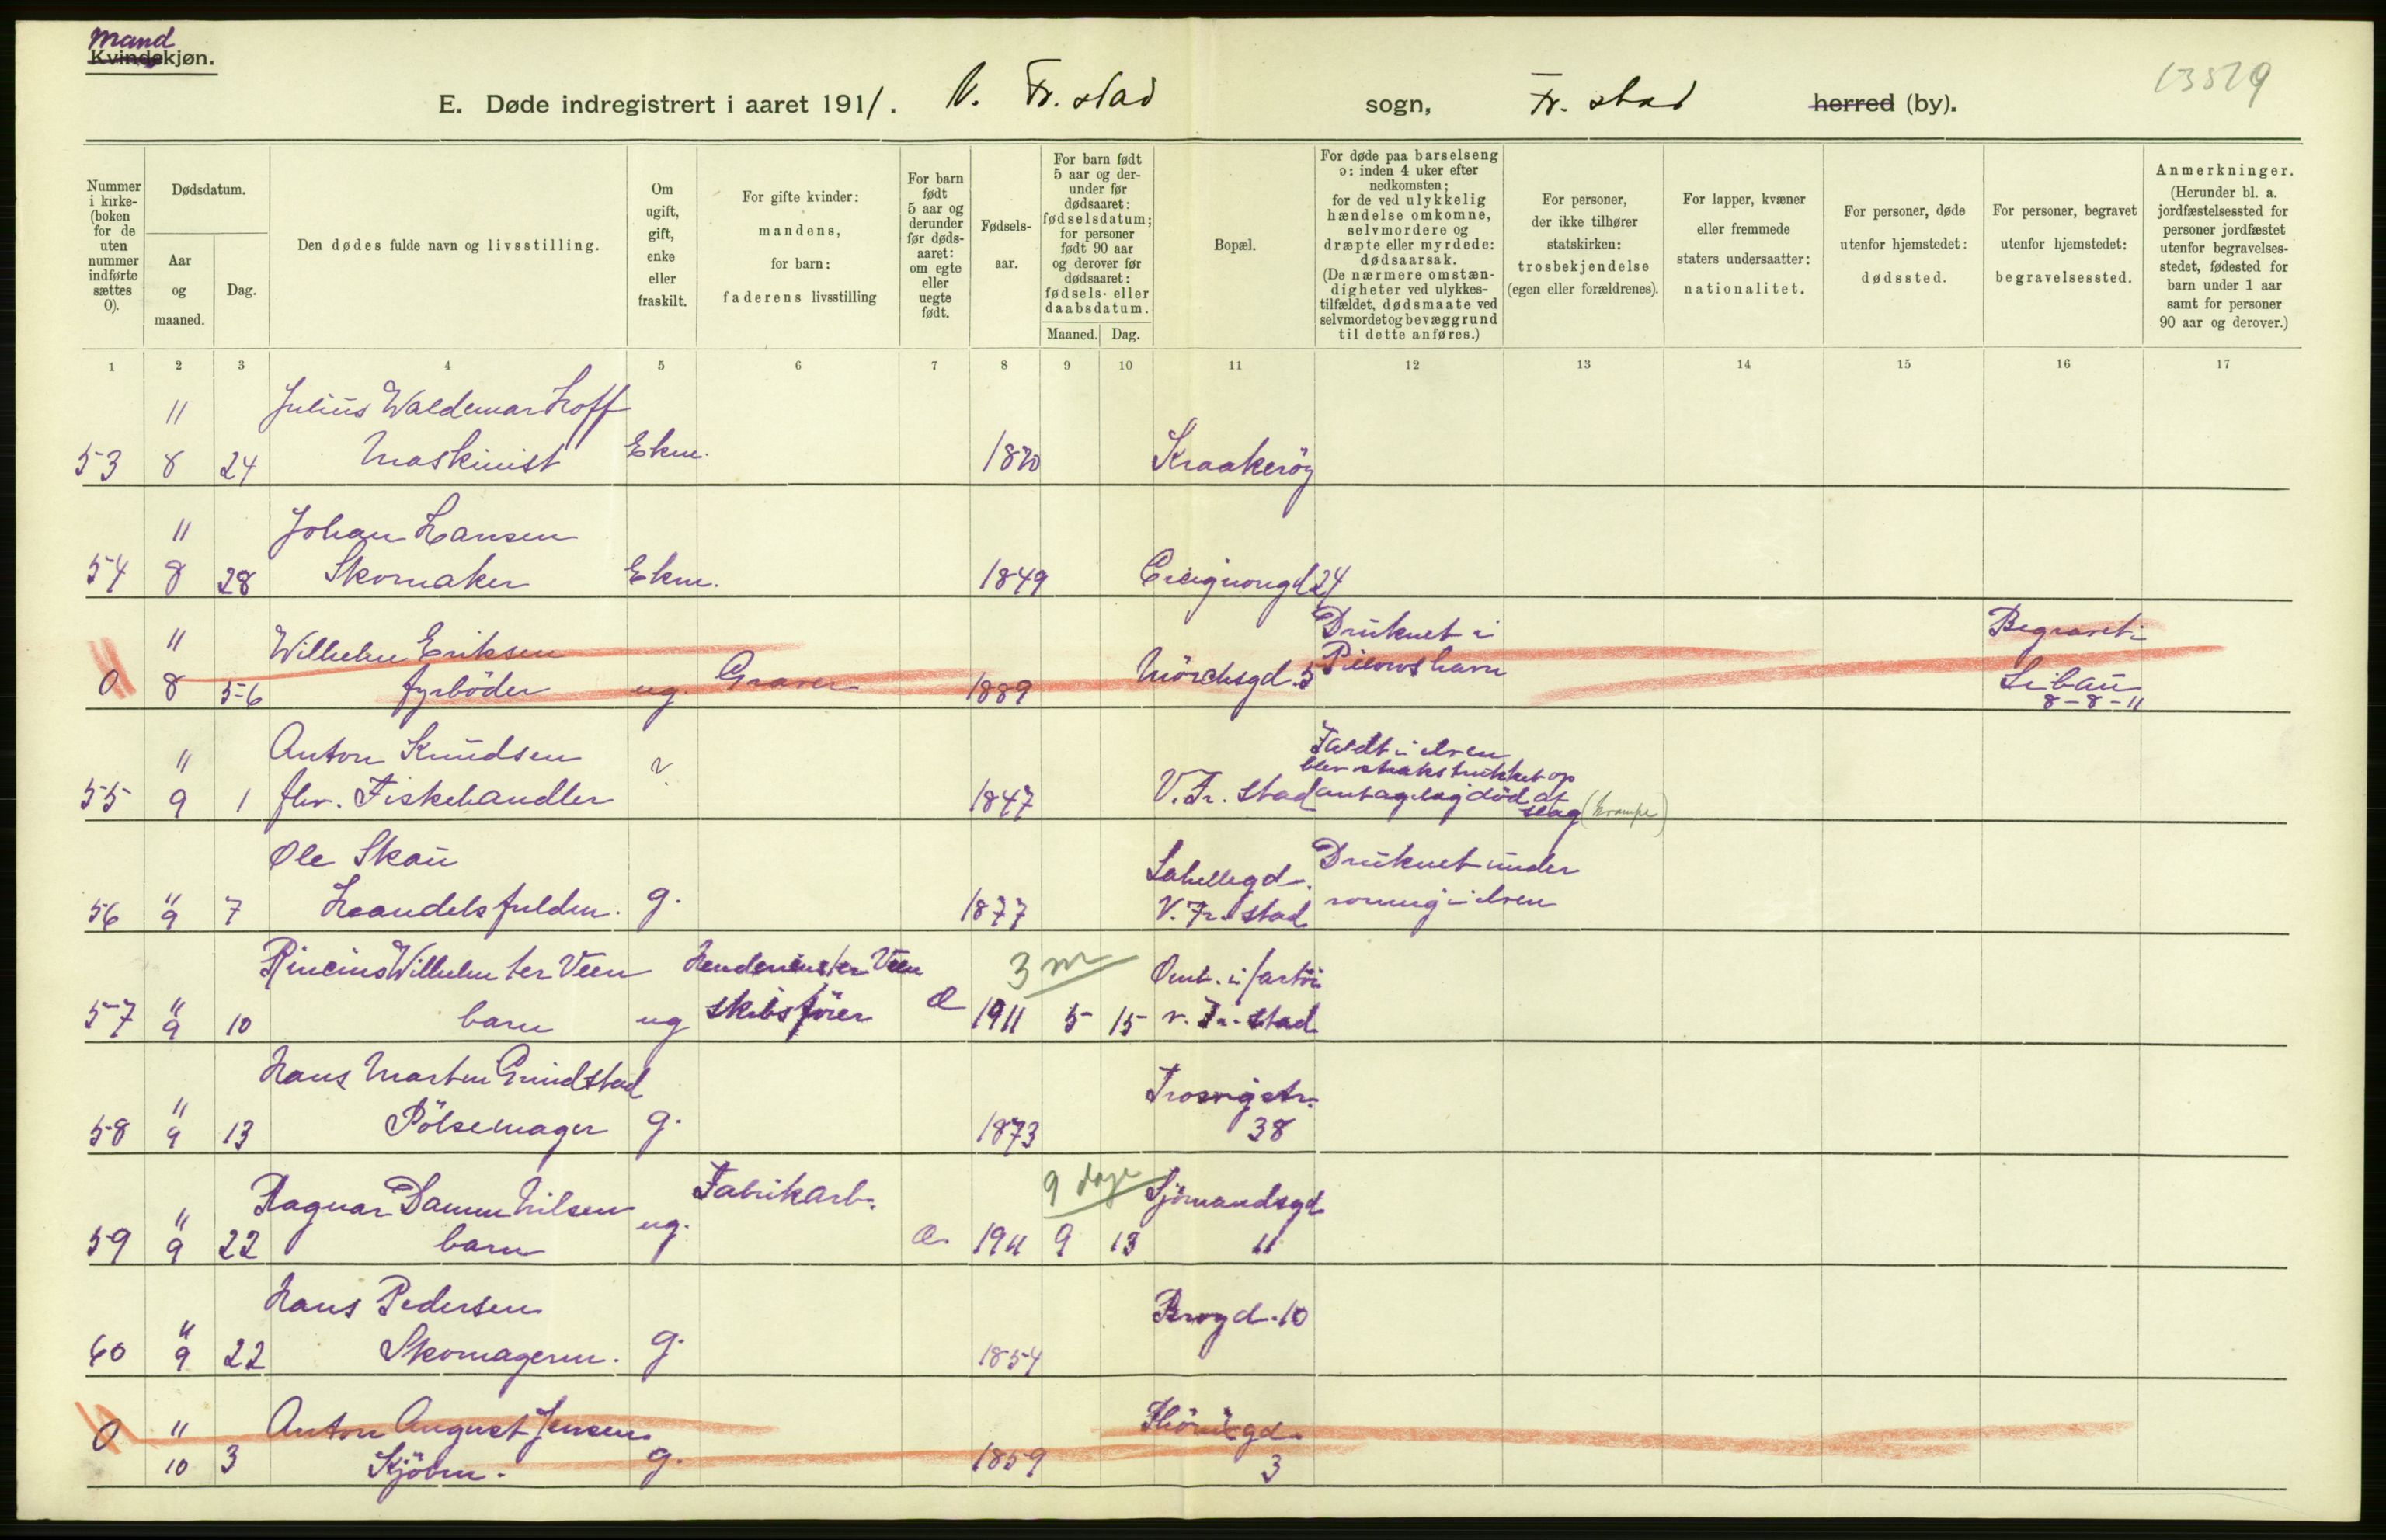 Mand
Kvindekjøn.
E. Døde indregistrert i aaret 1911. V. Fr. stad sogn, Fr. stad herred (by).
13579
Nummer i kirke- (boken for de uten nummer indførte sættes 0).
Dødsdatum.
Aar og maaned.
Dag.
Den dødes fulde navn og livsstilling.
Om ugift, gift, enke eller fraskilt.
For gifte kvinder: mandens, for barn: faderens livsstilling
For barn født 5 aar og derunder før døds- aaret: om egte eller uegte født.
Fødsels- aar.
For barn født 5 aar og der- under før dødsaaret: fødselsdatum; for personer født 90 aar og derover før dødsaaret: fødsels- eller daabsdatum.
Maaned. Dag.
Bopæl.
For døde paa barselseng ɔ: inden 4 uker efter nedkomsten; for de ved ulykkelig hændelse omkomne, selvmordere og dræpte eller myrdede: dødsaarsak. (De nærmere omstæn- digheter ved ulykkes- tilfældet, dødsmaate ved selvmord et og bevæggrund til dette anføres.)
For personer, der ikke tilhører statskirken: trosbekjendelse (egen eller forældrenes).
For lapper, kvæner eller fremmede staters undersaatter: nationalitet.
For personer, døde utenfor hjemstedet: dødssted.
For personer, begravet utenfor hjemstedet: begravelsessted.
Anmerkninger. (Herunder bl. a. jordfæstelsessted for personer jordfæstet utenfor begravelses- stedet, fødested for barn under 1 aar samt for personer 90 aar og derover.)
1 2 3 4 5 6 7 8 9 10 11 12 13 14 15 16 17
11 Julius Waldemar Hoff
53 8 24 Maskinist Ekm. 1870 Kraakerøy
11 Johan Hansen
54 8 28 Skomaker Ekm. 1849 24
11 Wilhelm Eriksen Druknet i Begravet i
0 8 5-6 fyrbøder ug. Graver 1889 Mørchsgd. 5 Pillows havn Libau
8-8-11
11 Anton Knudsen ? Faldt i elven
blev straks trukket op
55 9 1 fhv. Fiskehandler 1847 V. Fr. stad antagelig død af
slag (krampe)
Ole Skau Lahellegd. Druknet under
56 " 9 7 Handelsfuldm. g. 1877 V. Fr. stad roning i elven
Rincius Wilhelm ter Veen ter Veen 3 m Omb. i fartøi
57 " 9 10 barn ug skibsfører Æ 1911 5 15 v. Fr. stad
Hans Martin Grindstad Trosvigstr.
58 " 9 13 Pølsemager g. 1873 38
Ragnar Damm Nilsen Fabrikarb. 9 dage Sjømandsgd
59 " 9 22 barn ug. Æ. 1911 9 13 11
Hans Pedersen Brogd. 10
60 " 9 22 Skomagerm. g. 1854
0 11 Anton August Jensen
10 3 Kjøbm. g. 1859 3